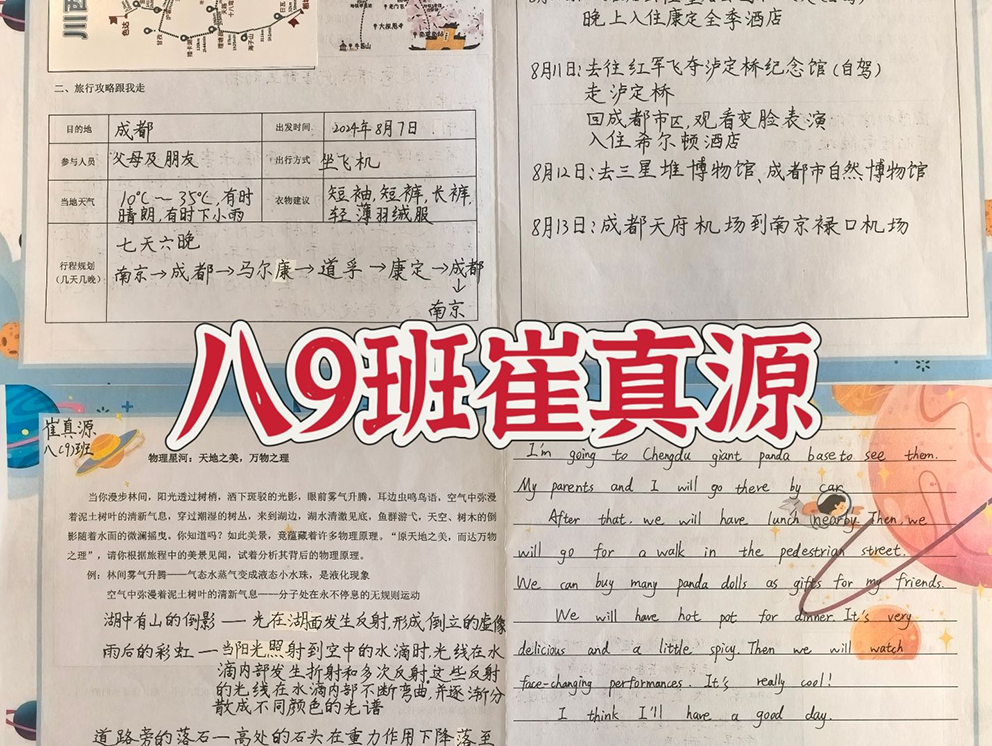 川西
色达
甘孜
二、旅行攻略跟我走
目的地 成都 出发时间 2024年8月7日
参与人员 父母及朋友 出行方式 坐飞机
当地天气 10℃～35℃,有时晴朗,有时下小雨
衣物建议 短袖,短裤,长裤,轻薄羽绒服
行程规划（几天几晚）
七天六晚
南京→成都→马尔康→道孚→康定→成都
↓
南京
晚上入住康定全季酒店
8月11日:去往红军飞夺泸定桥纪念馆(自驾)
走泸定桥
回成都市区,观看变脸表演
入住希尔顿酒店
8月12日:去三星堆博物馆、成都市自然博物馆
8月13日:成都天府机场到南京禄口机场
八9班崔真源
崔真源
八(9)班
物理星河：天地之美，万物之理
当你漫步林间，阳光透过树梢，洒下斑驳的光影，眼前雾气升腾，耳边虫鸣鸟语，空气中弥漫
着泥土树叶的清新气息，穿过潮湿的树丛，来到湖边，湖水清澈见底，鱼群游弋，天空、树木的倒
影随着水面的微澜摇曳，你知道吗？如此美景，竟蕴藏着许多物理原理。“原天地之美，而达万物
之理”，请你根据旅程中的美景见闻，试着分析其背后的物理原理。
例：林间雾气升腾——气态水蒸气变成液态小水珠，是液化现象
空气中弥漫着泥土树叶的清新气息——分子处在永不停息的无规则运动
湖中有山的倒影 — 光在湖面发生反射,形成倒立的虚像
雨后的彩虹 — 当阳光照射到空中的水滴时,光线在水
滴内部发生折射和多次反射,这些反射
的光线在水滴内部不断弯曲,并逐渐分
散成不同颜色的光谱
道路旁的落石 — 高处的石头在重力作用下降落至
I'm going to Chengdu giant panda base to see them.
My parents and I will go there by car.
After that, we will have lunch nearby. Then, we
will go for a walk in the pedestrian street.
We can buy many panda dolls as gifts for my friends.
We will have hot pot for dinner. It's very
delicious and a little spicy. Then we will watch
face-changing performances. It's really cool!
I think I'll have a good day.